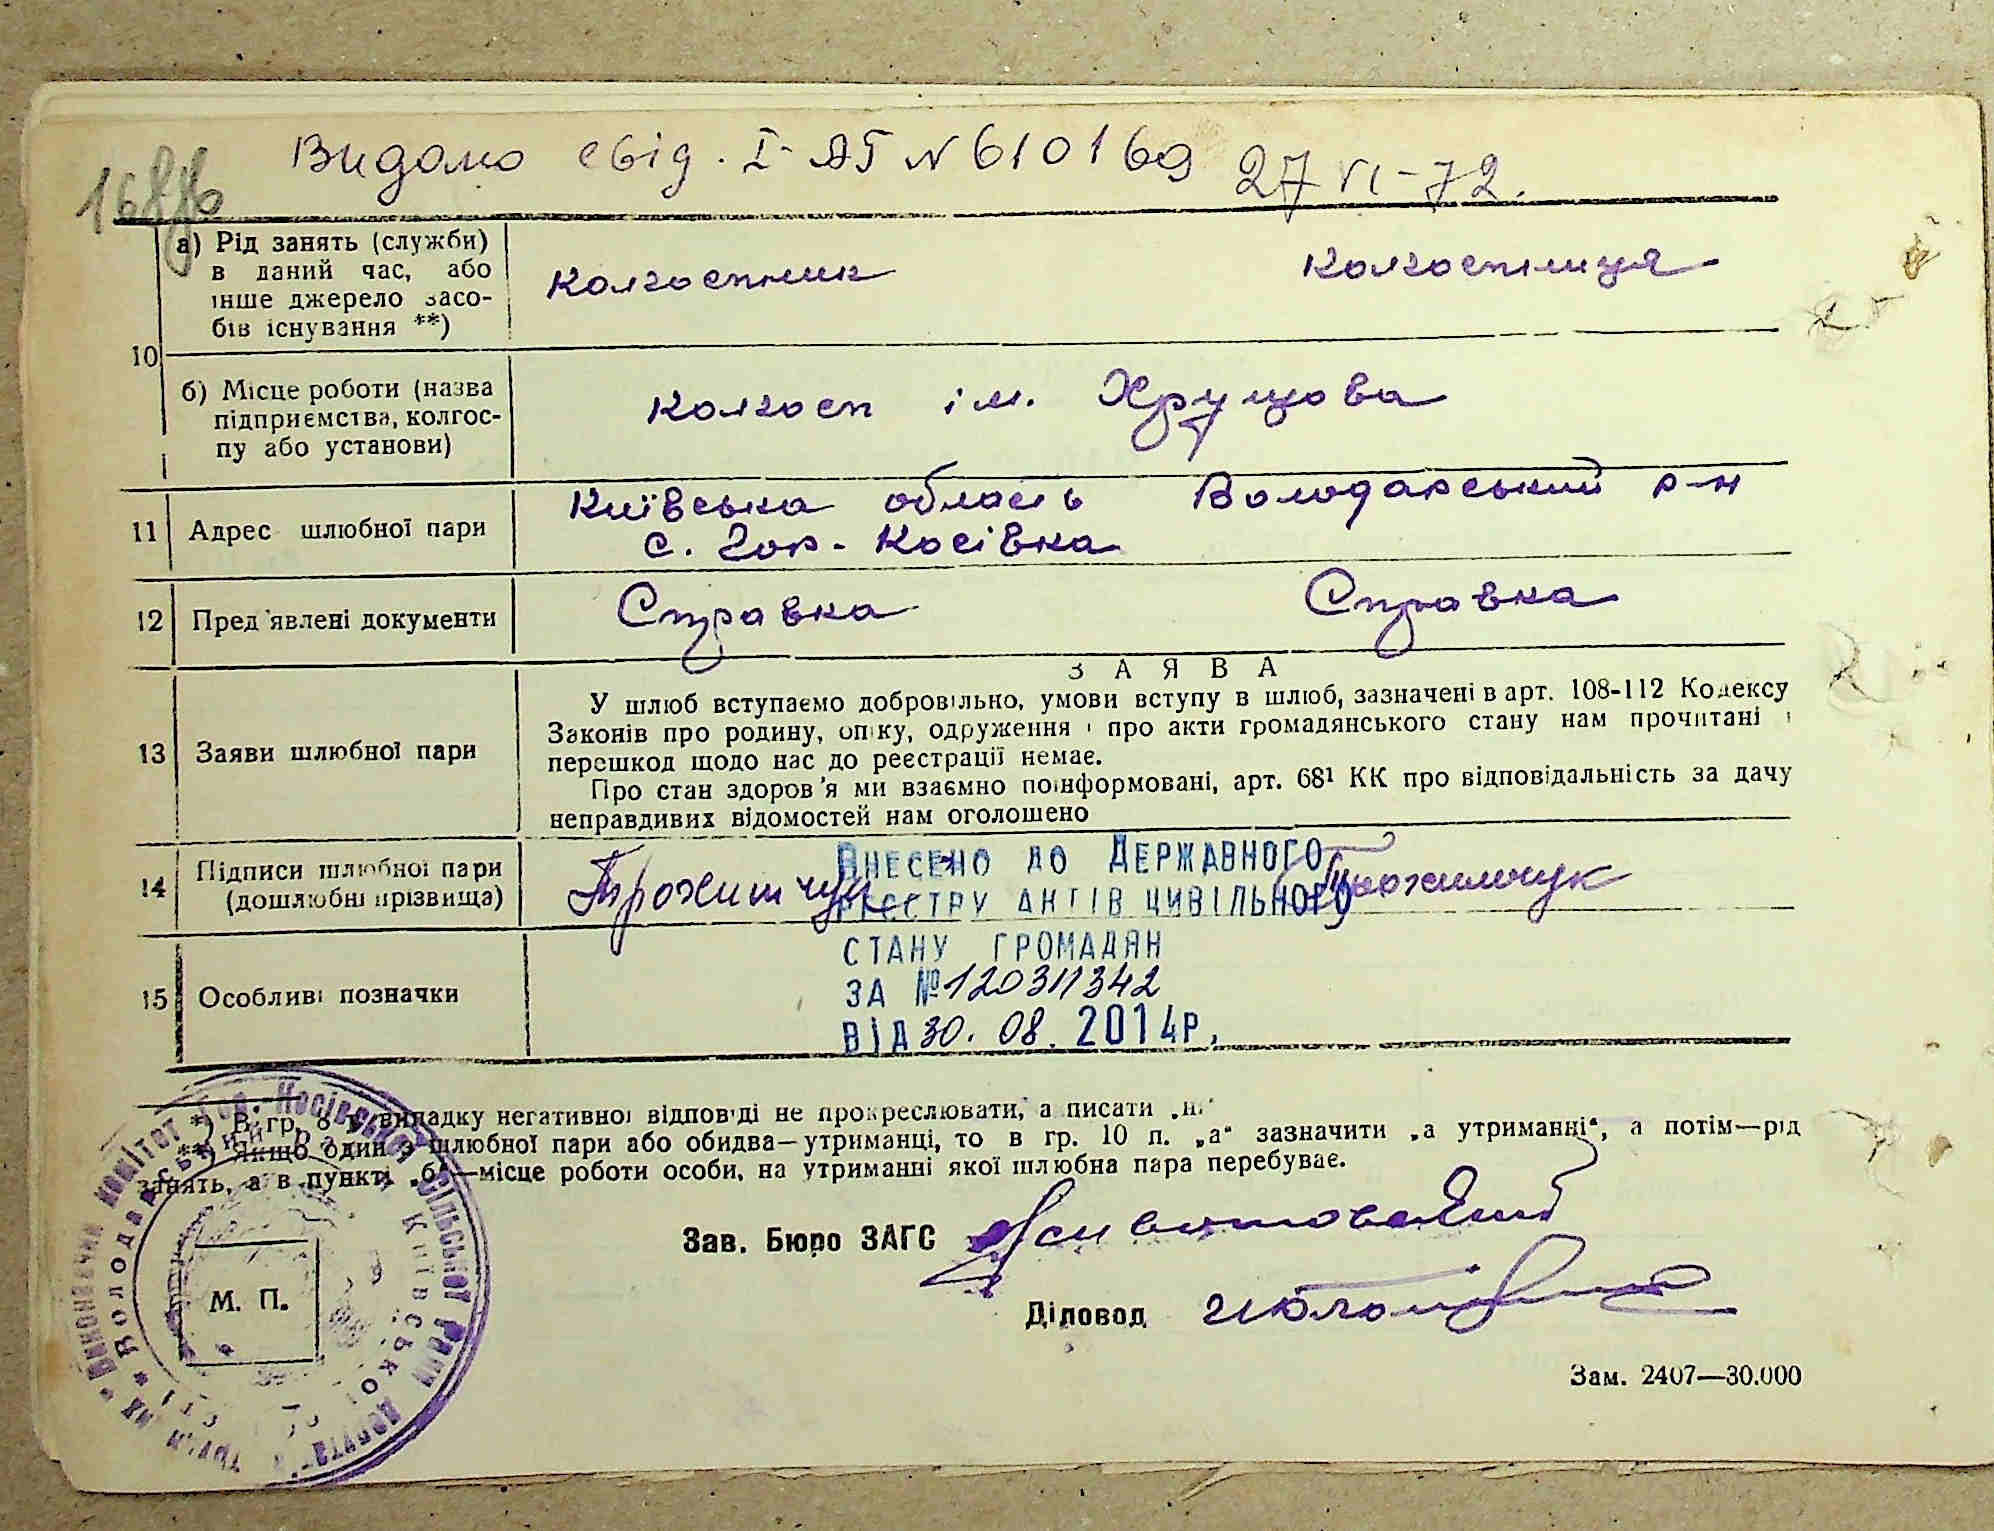 Видано свід. I-АГ № 610169 27 VI-72.
а) Рід занять (служби)
в даний час, або
інше джерело засо-
бів існування **)
Колгоспник
Колгоспниця
10
б) Місце роботи (назва
підприємства, колгос-
пу або установи)
Колгосп ім. Хрущова
11
Адрес шлюбної пари
Київська область Володарський р-н
с. Гор-Косівка
12
Пред'явлені документи
Справка
Справка
13
Заяви шлюбної пари
ЗАЯВА
У шлюб вступаємо добровільно, умови вступу в шлюб, зазначені в арт. 108-112 Кодексу
Законів про родину, опіку, одруження і про акти громадянського стану нам прочитані і
перешкод щодо нас до реєстрації немає.
Про стан здоров'я ми взаємно поінформовані, арт. 68¹ КК про відповідальність за дачу
неправдивих відомостей нам оголошено
14
Підписи шлюбної пари
(дошлюбні прізвища)
ВНЕСЕНО ДО ДЕРЖАВНОГО
РЕЄСТРУ АКТІВ ЦИВІЛЬНОГО
СТАНУ ГРОМАДЯН
ЗА № 120311342
ВІД 30. 08. 2014 Р.
15
Особливі позначки
*) В гр. 8 у випадку негативної відповіді не прокреслювати, а писати „ні“
**) Якщо один з шлюбної пари або обидва—утриманці, то в гр. 10 п. „а“ зазначити „а утриманні“, а потім—рід
занять, а в пункті „б“—місце роботи особи, на утриманні якої шлюбна пара перебуває.
Зав. Бюро ЗАГС
Діловод
М. П.
Зам. 2407—30.000